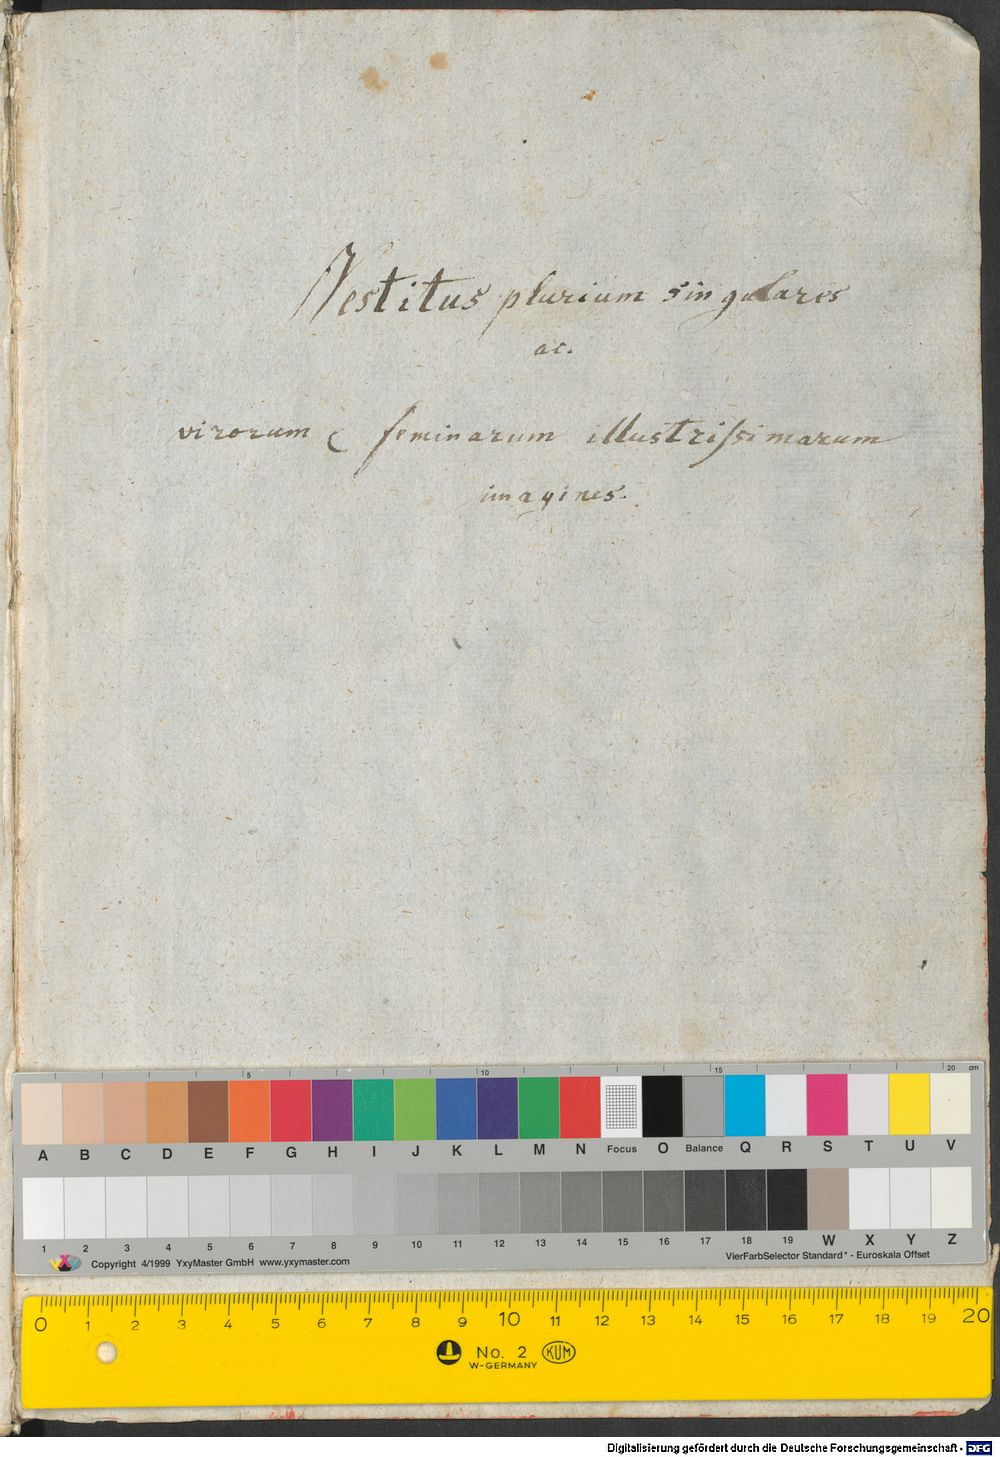 Vestitus plurium singulares
ac.
virorum & feminarum illustriſsimarum
imagines.
5 10 15 20 cm
A B C D E F G H I J K L M N Focus O Balance Q R S T U V
1 2 3 4 5 6 7 8 9 10 11 12 13 14 15 16 17 18 19 W X Y Z
VXY Copyright 4/1999 YxyMaster GmbH www.yxymaster.com VierFarbSelector Standard* - Euroskala Offset
0 1 2 3 4 5 6 7 8 9 10 11 12 13 14 15 16 17 18 19 20
No. 2 KUM
W-GERMANY
Digitalisierung gefördert durch die Deutsche Forschungsgemeinschaft - DFG